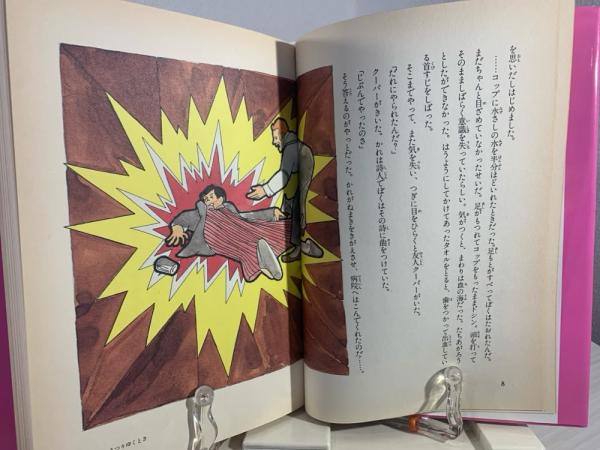 を思いだしはじめました。
……コップに水さしの水を半分ほどいれたときだった。足もとがすべってぼくはたおれたんだ。
まだちゃんと目ざめていなかったせいだ。足がもつれてコップをもったままドシン。頭を打って
そのまましばらく意識を失っていたらしい。気がつくと、まわりは血の海だった。たちあがろう
としたができなかった。はうようにしてかけてあったタオルをとると、歯をつかって出血してい
る首すじをしばった。
そこまでやって、また気を失い、つぎに目をひらくと友人クーパーがいた。
「だれにやられたんだ?」
クーパーがきいた。かれは詩人でぼくはその詩に曲をつけていた。
「じぶんでやったのさ」
そう答えるのがやっとだった。かれがねまきをきがえさせ、病院へはこんでくれたのだ……。
8
さつりゆくとき